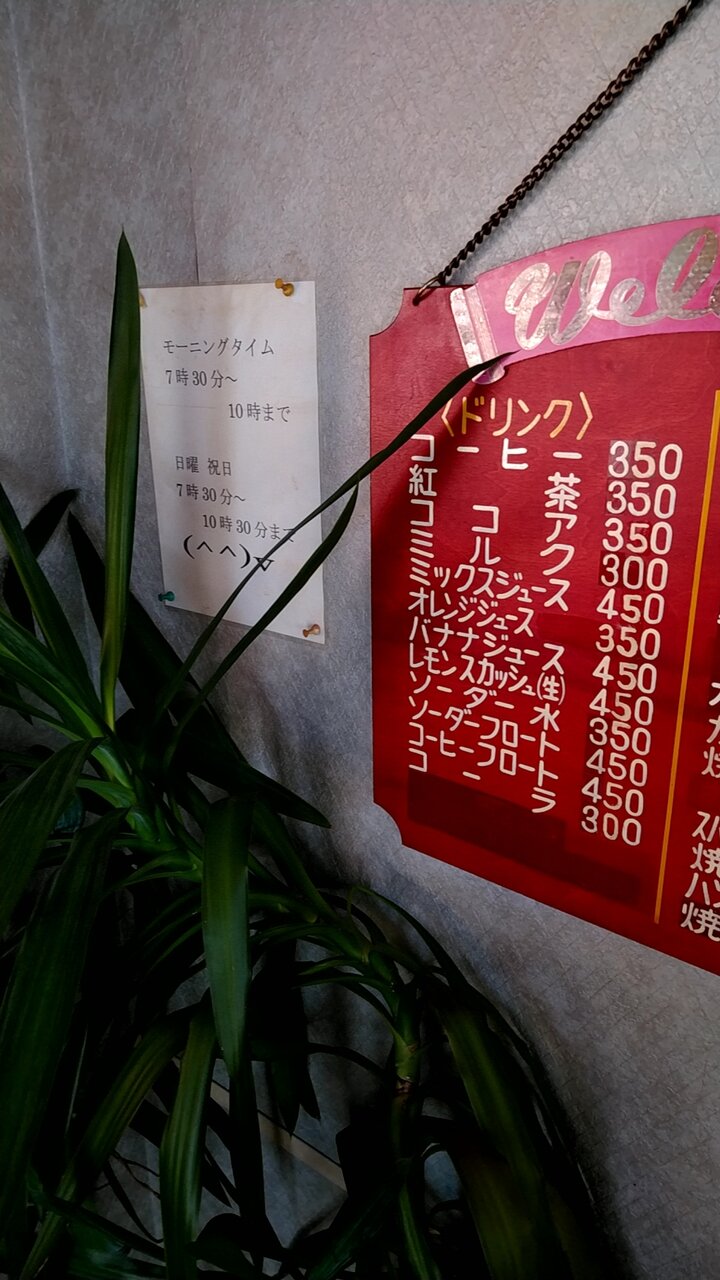 モーニングタイム
7時30分～
10時まで
日曜 祝日
7時30分～
10時30分まで
(^^)v
Wel
〈ドリンク〉
コーヒー 350
紅茶 350
ココア 350
ミルク 300
ミックスジュース 450
オレンジジュース 350
バナナジュース 450
レモンスカッシュ(生) 450
ソーダー水 350
ソーダーフロート 450
コーヒーフロート 450
コーラ 300
焼
スパ
焼
ハ
焼